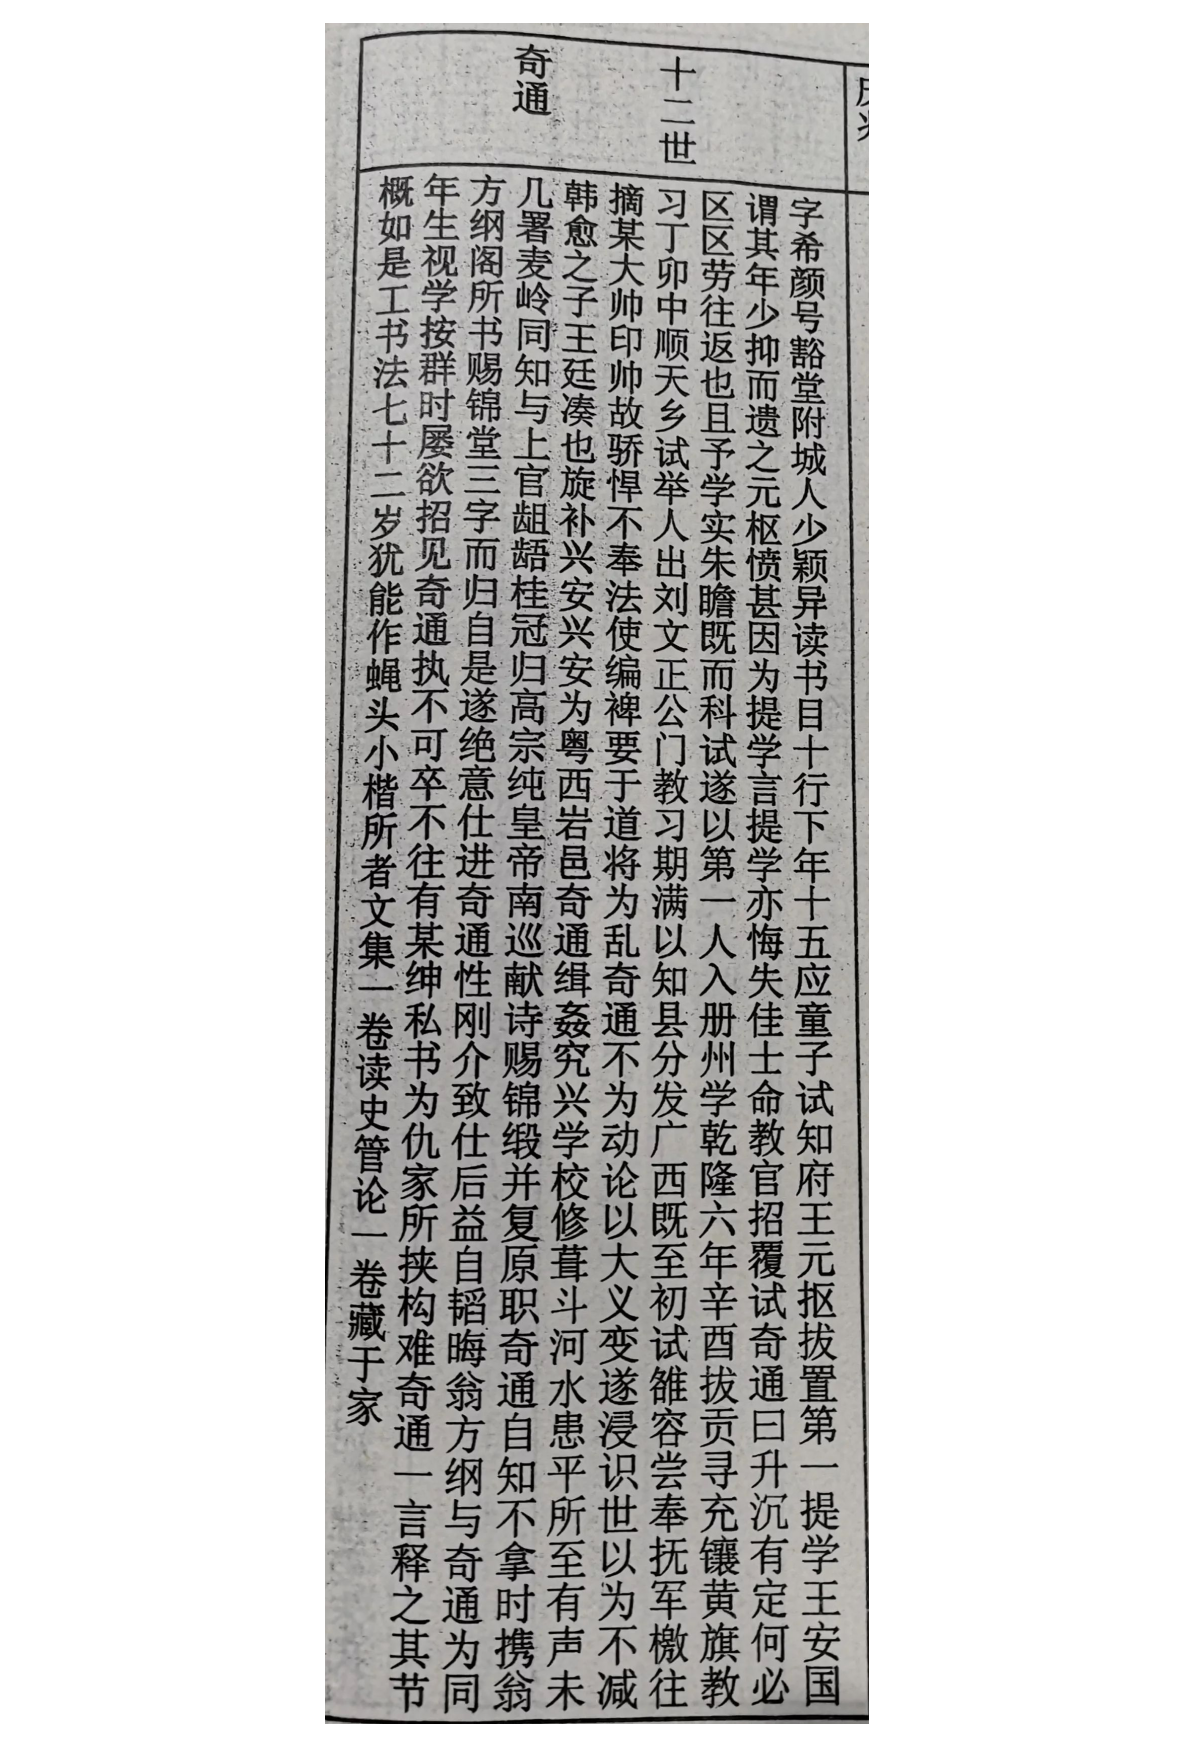 十二世
奇通
字希颜号豁堂附城人少颖异读书目十行下年十五应童子试知府王元抠拔置第一提学王安国
谓其年少抑而遗之元枢愤甚因为提学言提学亦悔失佳士命教官招覆试奇通曰升沉有定何必
区区劳往返也且予学实朱瞻既而科试遂以第一人入册州学乾隆六年辛酉拔贡寻充镶黄旗教
习丁卯中顺天乡试举人出刘文正公门教习期满以知县分发广西既至初试雒容尝奉抚军檄往
摘某大帅印帅故骄悍不奉法使编裨要于道将为乱奇通不为动论以大义变遂浸识世以为不减
韩愈之子王廷凑也旋补兴安兴安为粤西岩邑奇通缉姦究兴学校修葺斗河水患平所至有声未
几署麦岭同知与上官龃龉桂冠归高宗纯皇帝南巡献诗赐锦缎并复原职奇通自知不拿时携翁
方纲阁所书赐锦堂三字而归自是遂绝意仕进奇通性刚介致仕后益自韬晦翁方纲与奇通为同
年生视学按群时屡欲招见奇通执不可卒不往有某绅私书为仇家所挟构难奇通一言释之其节
概如是工书法七十二岁犹能作蝇头小楷所者文集一卷读史管论一卷藏于家